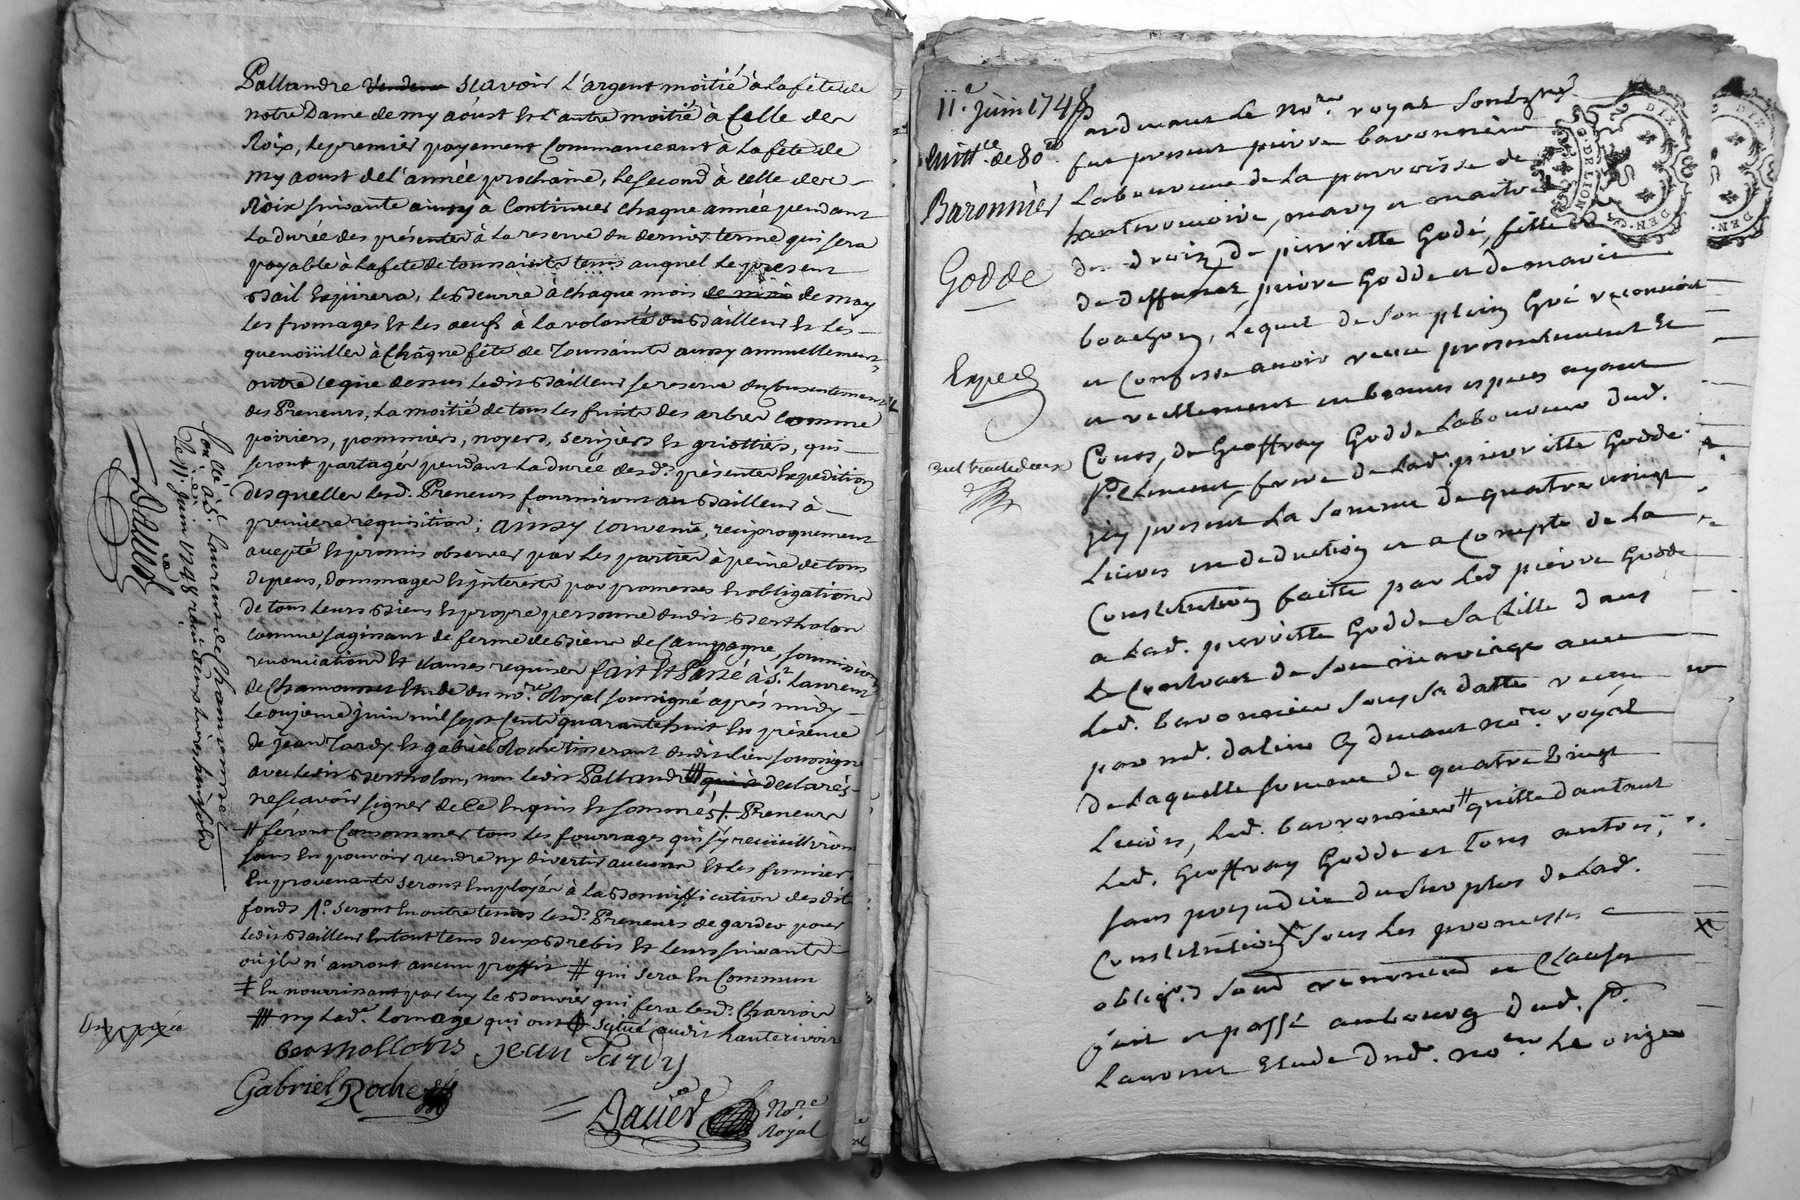 Pallandre vendeur sçavoir L'argent moitié à la fête de
notre Dame de my aoust et l'autre moitié à Celle des
Roix, le premier payement Commanceant à la fete de
my aoust de l'année prochaine, le second à celle des
Roix suivante ainsy à Continuer chaque année pendant
la durée des présentes à la reserve du dernier terme qui sera
payable à la fete de toussaints tems auquel le present
Bail Expirera, le Beurre à chaque mois de may
Les fromages et les oeufs à la volonté du Bailleur et les
quenouilles à Chaque fête de Toussaints aussy annuellement
outre ce que dessus ledit Bailleur se reserve du consentement
des Preneurs, la moitié de tous les fruits des arbres comme
poiriers, pommiers, noyers, serisiers et griottiers, qui
seront partagés pendant la durée desd. présentes Expedition
desquelles lesd. Preneurs fourniront au Bailleur à
premiere requisition; ainsy convenu, reciproquement
accepté et promis observer par les parties à peine de tous
depens, dommages et interests par promesses et obligations
de tous leurs Biens et propre personne dudit Bertholon
comme s'agissant de ferme de Biens de Campagne, soumissions
renonciations et clauses requises fait et Passé à St. Laurent
de Chamousset Etude du nore. Royal soussigné après midy
le onzieme juin mil sept cents quarante huit en présence
de jean Tardy et gabriel Roche tisserant dudit lieu soussignés
avec ledit Bertholon, non ledit Pallandre # qui à declaré
ne sçavoir signer de ce Enquis et sommés ‡ Preneurs
# feront Consommer tous les fourrages qui s'y recueilliront
sans En pouvoir vendre ny divertir aucuns et les fumiers
En provenants seront Employés à la Bonniffication desdits
fonds No. seront En outre tenus lesd. Preneurs de garder pour
ledit Bailleur En tout tems deux Brebis et leurs suivants
où ils n'auront aucun proffit # qui sera En Commun
‡ En nourrissant par luy le Bouvier qui fera lesd. Charrois
# ny lad. lomage qui ont situé audit hauterivoire
berthollons jean Tardy
Gabriel Roche
Davier Nore. Royal
Conllé à St. Laurent de Chamousset
le 11e juin 1748 reçu
Davier
11e. juin 1748
quittce. de 80 ℔
Baronnier
Godde
Exped
Pardevant le Nore. royal soussigné
fut present pierre baronnier
Laboureur de la parroisse de
hauterivoire, mary et maitre
des droits de pierrette Godé, fille
de deffunt pierre Godde et de marie
bouchon, Lequel de son plein Gré reconnoit
et Confesse avoir receu presentement Et
et reellement en bonnes especes ayant
Cours, de Geoffray Godde Laboureur dud.
St. Clement, frere de lad. pierrette Godde
icy present La somme de quatre vingt
Livres en deduction et a Compte de la
Constitution faitte par led pierre Godde
a lad. pierrette Godde sa fille dans
le Contract de son mariage avec
led. baronnier sous sa datte receu
par me. dalin Cy devant nore. royal
de Laquelle somme de quatre vingt
Livres, led. barronnier # quitte dautant
led. Geoffray Godde et tous autres,
sans prejudice du surplus de lad.
Constitution sous les promesses
obligs. soumd renonciad et Clauses
fait et passé au bourg dud. St.
Laurent Etude dud. nore. le onze
DIX DEN
G. DE LION